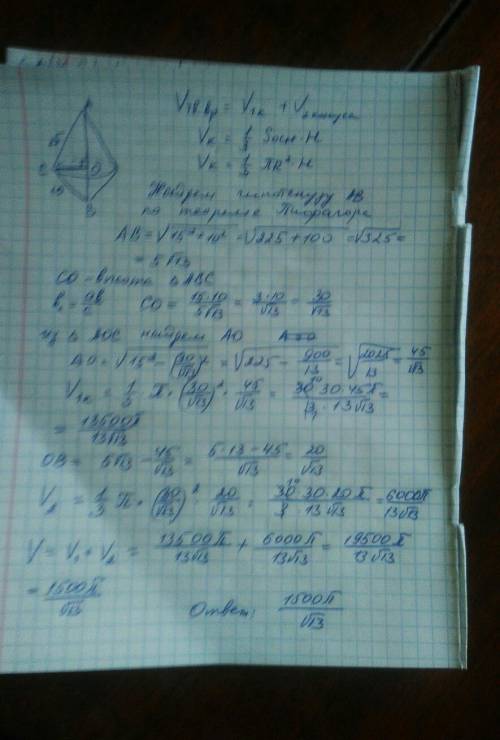 A
15
C
O
10
B
V тв.вр = V1к + V2 конуса
Vк = 1/3 Sосн · H
Vк = 1/3 πR² · H
Найдем гипотенузу AB
по теореме Пифагора
AB = √15² + 10² = √225 + 100 = √325 =
= 5√13
CO – высота △ABC
CO = 15·10/5√13 = 3·10/√13 = 30/√13
из △ AOC найдем AO
AO = √15² − (30/√13)² = √225 − 900/13 = √2025/13 = 45/√13
V1к = 1/3 π · (30/√13)² · 45/√13 = 30·30·45π/3·13√13 =
= 13500π/13√13
OB = 5√13 − 45/√13 = 5·13−45/√13 = 20/√13
V2 = 1/3 π · (30/√13)² · 20/√13 = 30·30·20π/3·13√13 = 6000π/13√13
V = V1 + V2 = 13500π/13√13 + 6000π/13√13 = 19500π/13√13
= 1500π/√13
Ответ: 1500π/√13